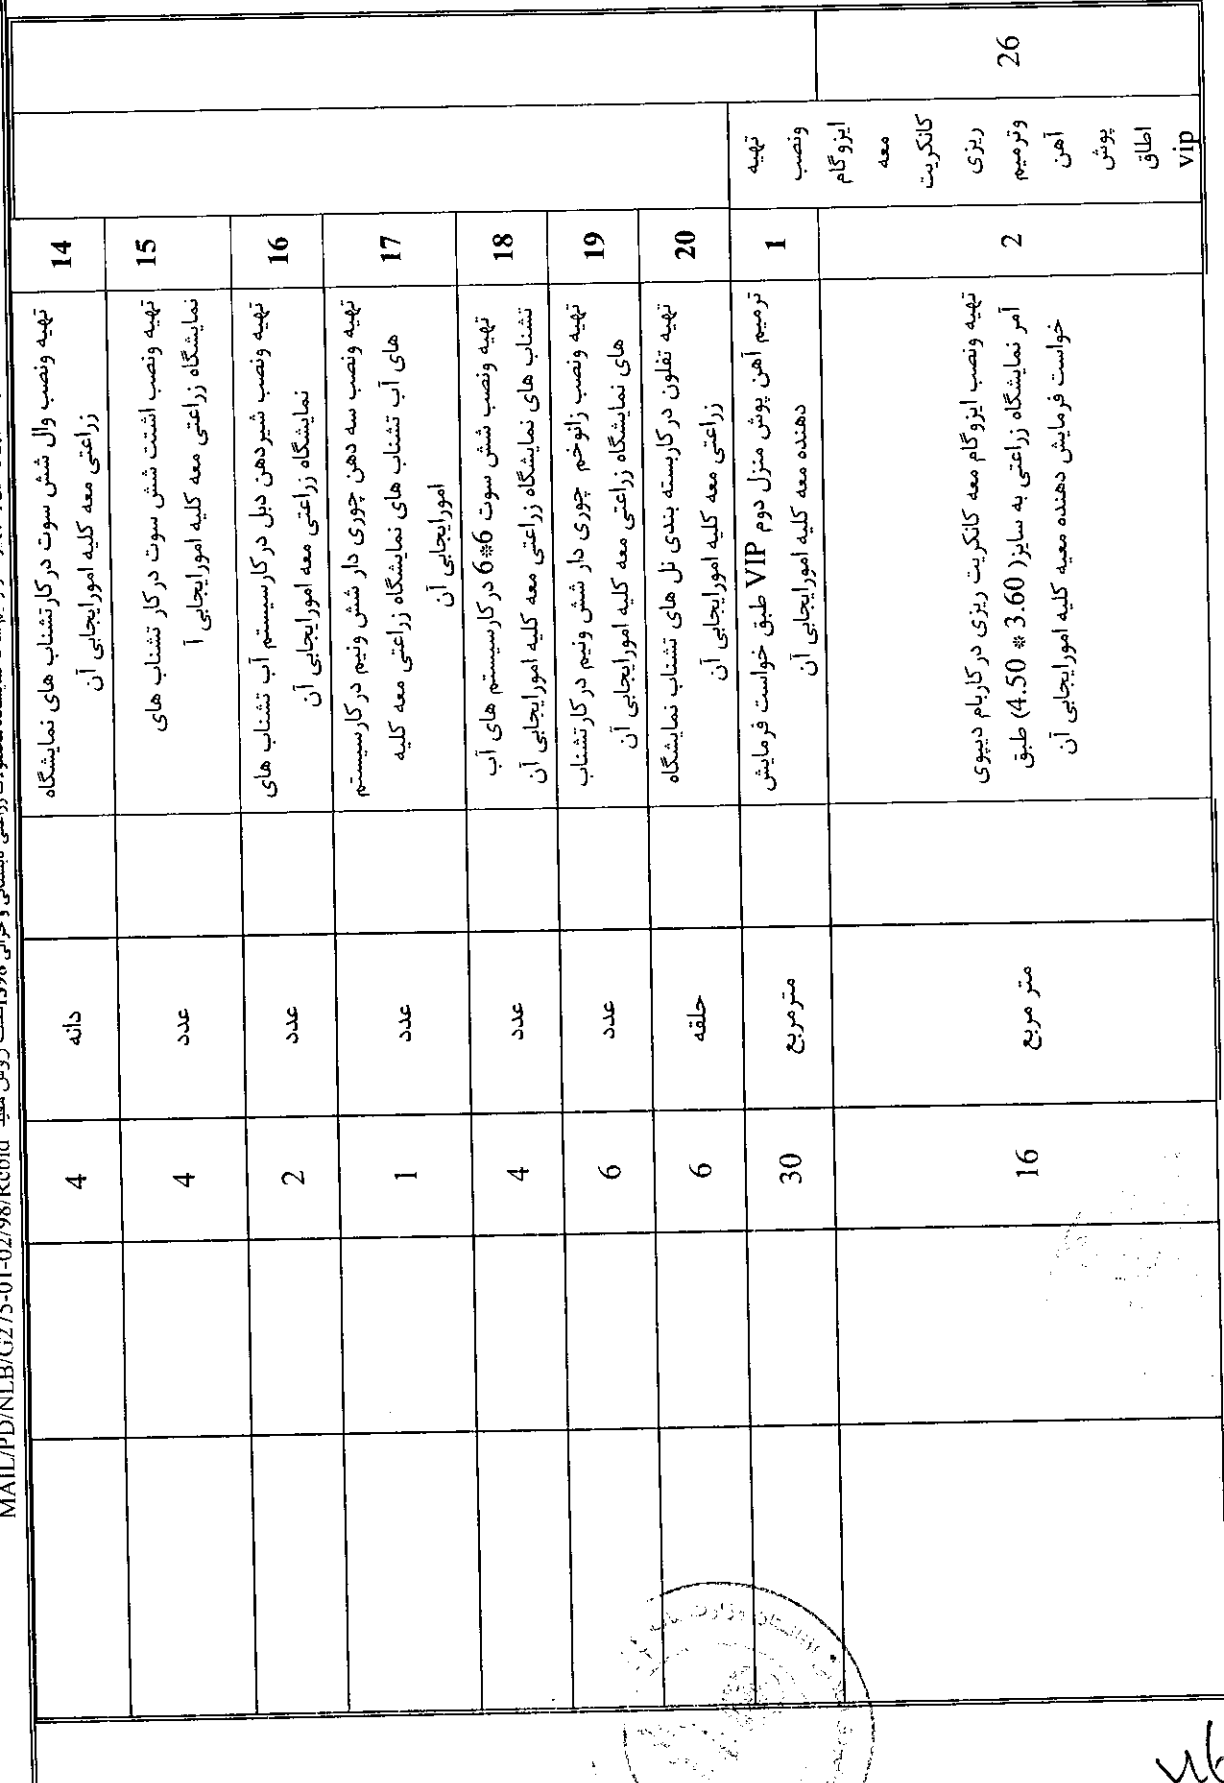 MAIL/PD/NLB/G275-01-02/98/Rebid
14
تهیه ونصب وال شش سوت درکار تشناب های نمایشگاه
زراعتی معه کلیه امورایجابی آن
دانه
4
15
تهیه ونصب اشتت شش سوت درکار تشناب های
نمایشگاه زراعتی معه کلیه امورایجابی آ
عدد
4
16
تهیه ونصب شیردهن دبل درکارسیستم آب تشناب های
نمایشگاه زراعتی معه امورایجابی آن
عدد
2
17
تهیه ونصب سه دهن چوری دار شش ونیم درکارسیستم
های آب تشناب های نمایشگاه زراعتی معه کلیه
امورایجابی آن
عدد
1
18
تهیه ونصب شش سوت 6*6 درکارسیستم های آب
تشناب های نمایشگاه زراعتی معه کلیه امورایجابی آن
عدد
4
19
تهیه ونصب زانوخم چوری دار شش ونیم درکارتشناب
های نمایشگاه زراعتی معه کلیه امورایجابی آن
عدد
6
20
تهیه تفلون درکاربسته بندی نل های تشناب نمایشگاه
زراعتی معه کلیه امورایجابی آن
حلقه
6
26
تهیه
ونصب
ایزوگام
معه
کانکریت
ریزی
وترمیم
آهن
پوش
اطاق
vip
1
ترمیم آهن پوش منزل دوم VIP طبق خواست فرمایش
دهنده معه کلیه امورایجابی آن
مترمربع
30
2
تهیه ونصب ایزوگام معه کانکریت ریزی درکاربام دیپوی
آمر نمایشگاه زراعتی به سایز( 3.60 * 4.50) طبق
خواست فرمایش دهنده معیه کلیه امورایجابی آن
متر مربع
16